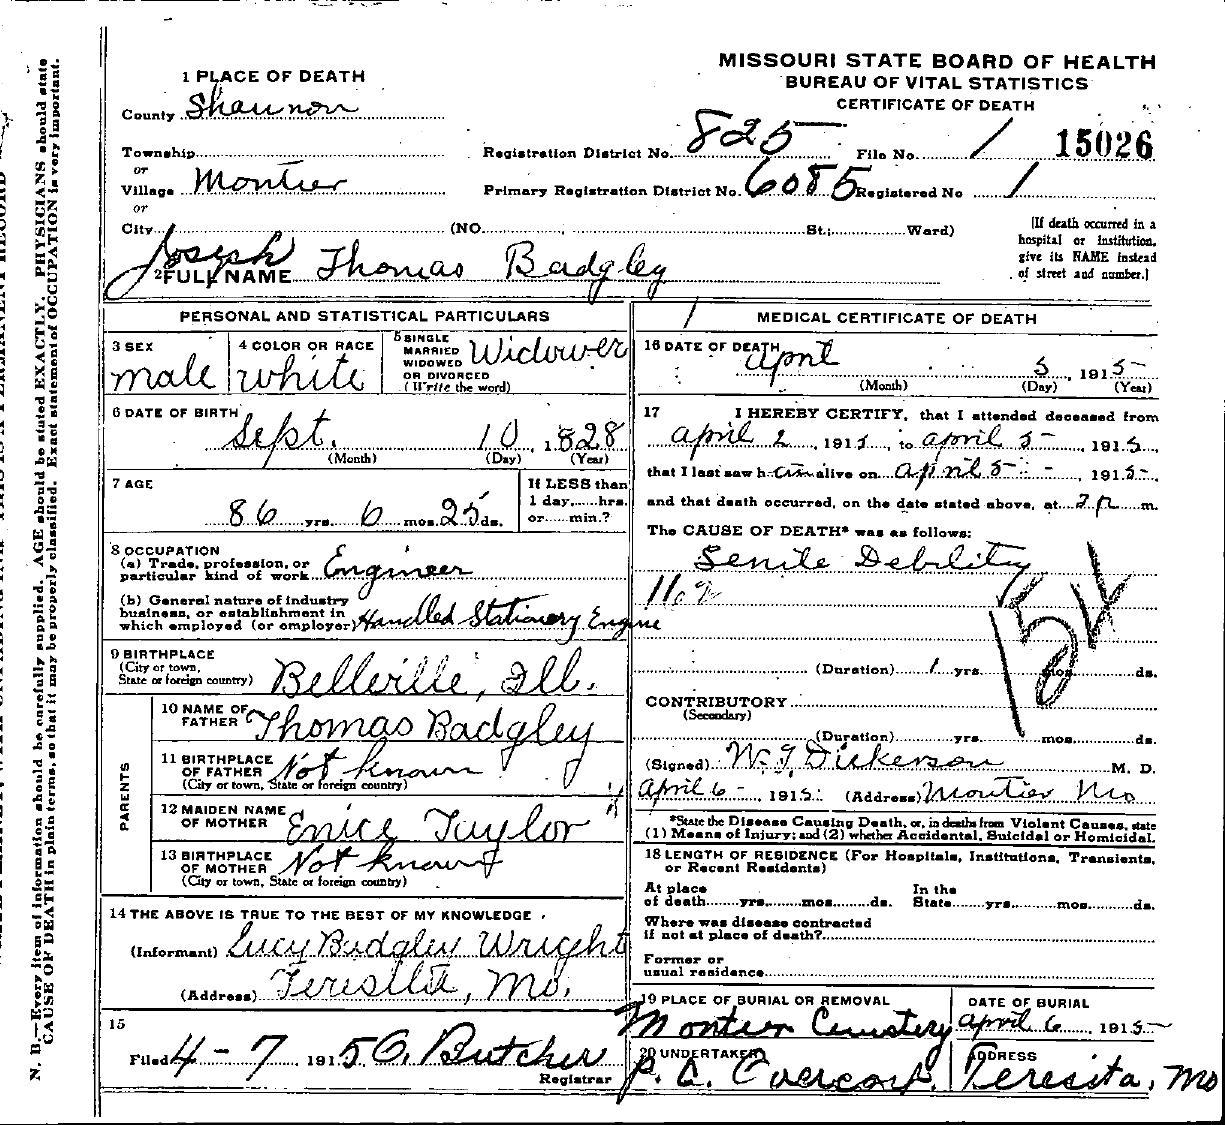 MISSOURI STATE BOARD OF HEALTH
BUREAU OF VITAL STATISTICS
CERTIFICATE OF DEATH
1 PLACE OF DEATH
County Shannon
Township
or
Village Montier
or
City (NO. St.; Ward)
Registration District No. 825 File No. 1 15026
Primary Registration District No. 6085 Registered No 1
[If death occurred in a
hospital or institution,
give its NAME instead
of street and number.]
2 FULL NAME Joseph Thomas Badgley
PERSONAL AND STATISTICAL PARTICULARS
3 SEX
male
4 COLOR OR RACE
white
5 SINGLE
MARRIED
WIDOWED
OR DIVORCED
(Write the word)
Widower
6 DATE OF BIRTH
Sept. 10, 1828
(Month) (Day) (Year)
7 AGE
86 yrs. 6 mos. 25 ds.
If LESS than
1 day, hrs.
or min.?
8 OCCUPATION
(a) Trade, profession, or
particular kind of work Engineer
(b) General nature of industry
business, or establishment in
which employed (or employer) Handled Stationery Engine
9 BIRTHPLACE
(City or town,
State or foreign country) Bellville, Ill.
PARENTS
10 NAME OF
FATHER Thomas Badgley
11 BIRTHPLACE
OF FATHER Not known
(City or town, State or foreign country)
12 MAIDEN NAME
OF MOTHER Enice Taylor
13 BIRTHPLACE
OF MOTHER Not known
(City or town, State or foreign country)
14 THE ABOVE IS TRUE TO THE BEST OF MY KNOWLEDGE
(Informant) Lucy Badgley Wright
(Address) Teresita, Mo.
15
Filed 4-7 1915 Butcher
Registrar
MEDICAL CERTIFICATE OF DEATH
16 DATE OF DEATH
April 5, 1915
(Month) (Day) (Year)
17 I HEREBY CERTIFY, that I attended deceased from
april 2, 1915, to april 5- 1915,
that I last saw him alive on april 5 -, 1915-,
and that death occurred, on the date stated above, at m.
The CAUSE OF DEATH* was as follows:
Senile Debility
154
(Duration) 1 yrs. mos. ds.
CONTRIBUTORY
(Secondary)
(Duration) yrs. mos. ds.
(Signed) Dickerson M. D.
April 6-, 1915 (Address) Montier Mo
*State the Disease Causing Death, or, in deaths from Violent Causes, state
(1) Means of Injury; and (2) whether Accidental, Suicidal or Homicidal.
18 LENGTH OF RESIDENCE (For Hospitals, Institutions, Transients,
or Recent Residents)
At place
of death yrs. mos. ds.
In the
State yrs. mos. ds.
Where was disease contracted
if not at place of death?
Former or
usual residence
19 PLACE OF BURIAL OR REMOVAL
Montier Cemetery
DATE OF BURIAL
april 6 1915
20 UNDERTAKER
P. C.
ADDRESS
Teresita, Mo
N. B.—Every item of information should be carefully supplied. AGE should be stated EXACTLY. PHYSICIANS should state
CAUSE OF DEATH in plain terms, so that it may be properly classified. Exact statement of OCCUPATION is very important.